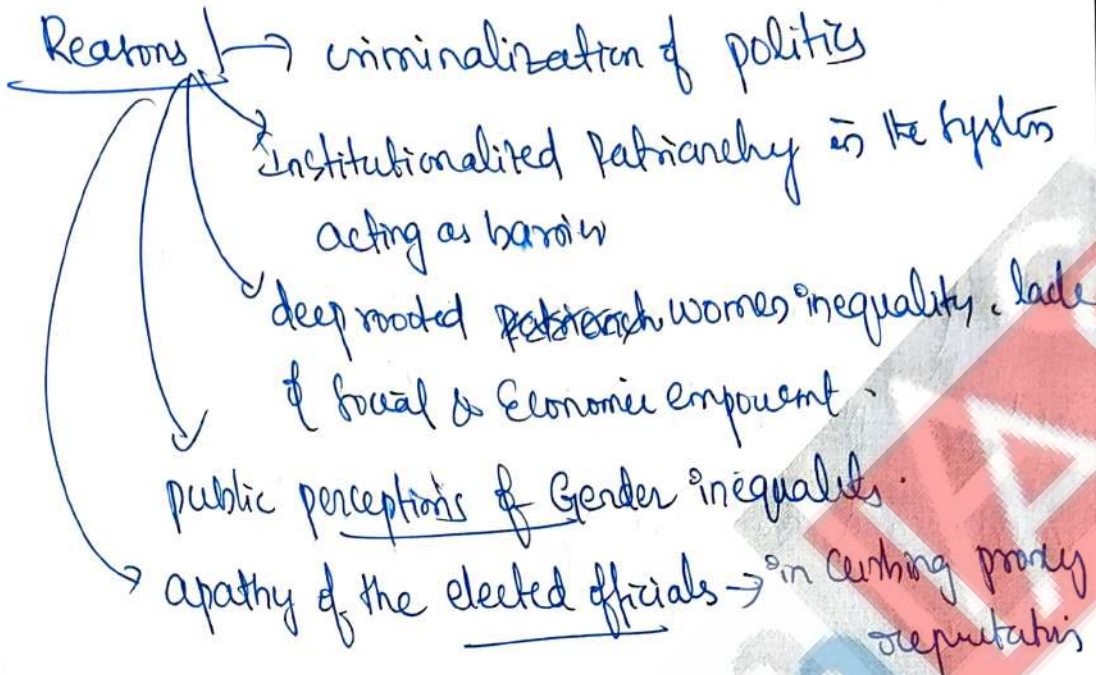 Reasons → criminalization of politics
Institutionalized Patriarchy in the system
acting as barrier
deeprooted women inequality. lack
of Social & Economic empowerment.
public perceptions of Gender inequality.
apathy of the elected officials → in curbing proxy